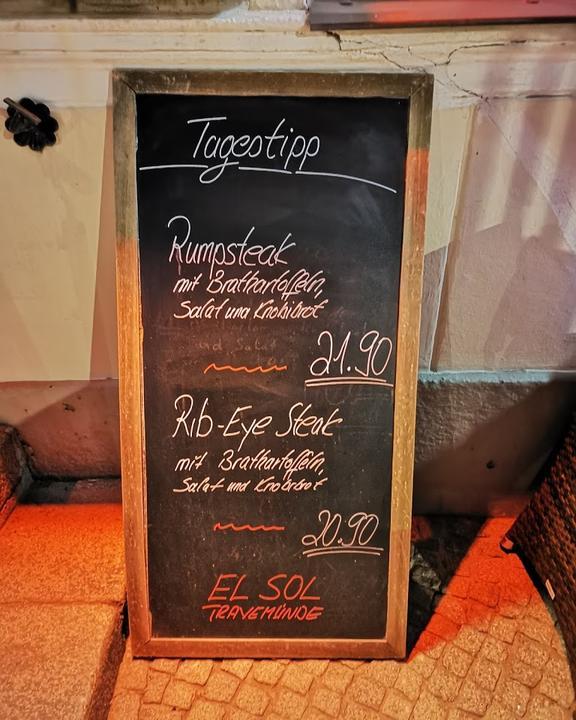 Tagestipp
Rumpsteak
mit Bratkartoffeln,
Salat und Knobibrot
und Salat
21.90
Rib-Eye Steak
mit Bratkartoffeln,
Salat und Knobibrot
20.90
EL SOL
TRAVEMÜNDE